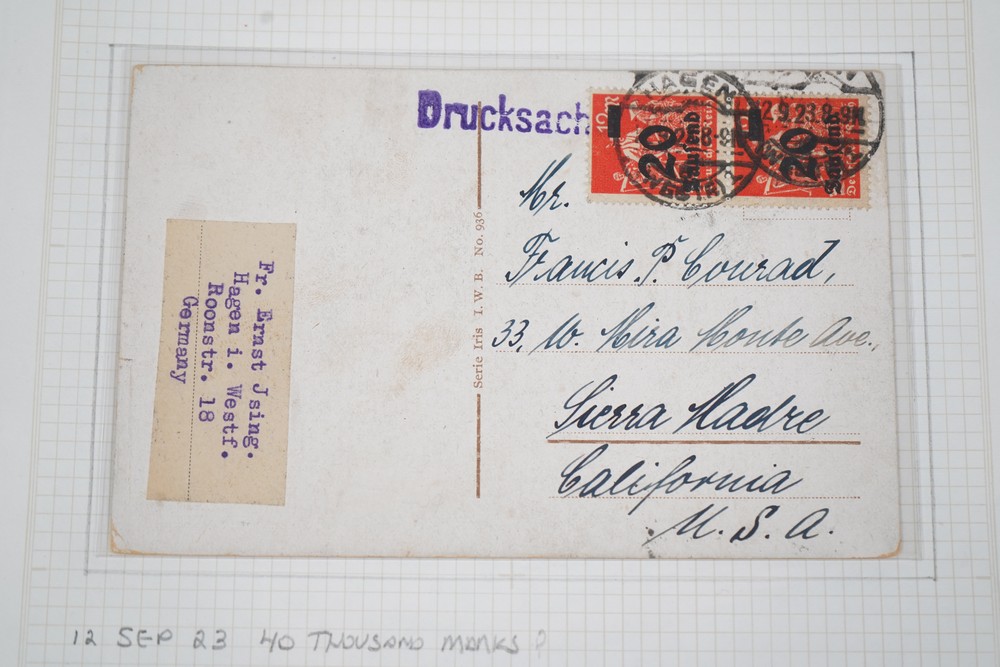 Drucksach
HAGEN
12.9.23.8-9N
20
Tausend
20
Tausend
Mr.
Francis. P. Conrad,
33, W. Mira Monte Ave.,
Sierra Madre
California
U. S. A.
Serie Iris I. W. B. No. 936
Fr. Ernst Jsing.
Hagen i. Westf.
Roonstr. 18
Germany
12 SEP 23 40 THOUSAND MARKS P